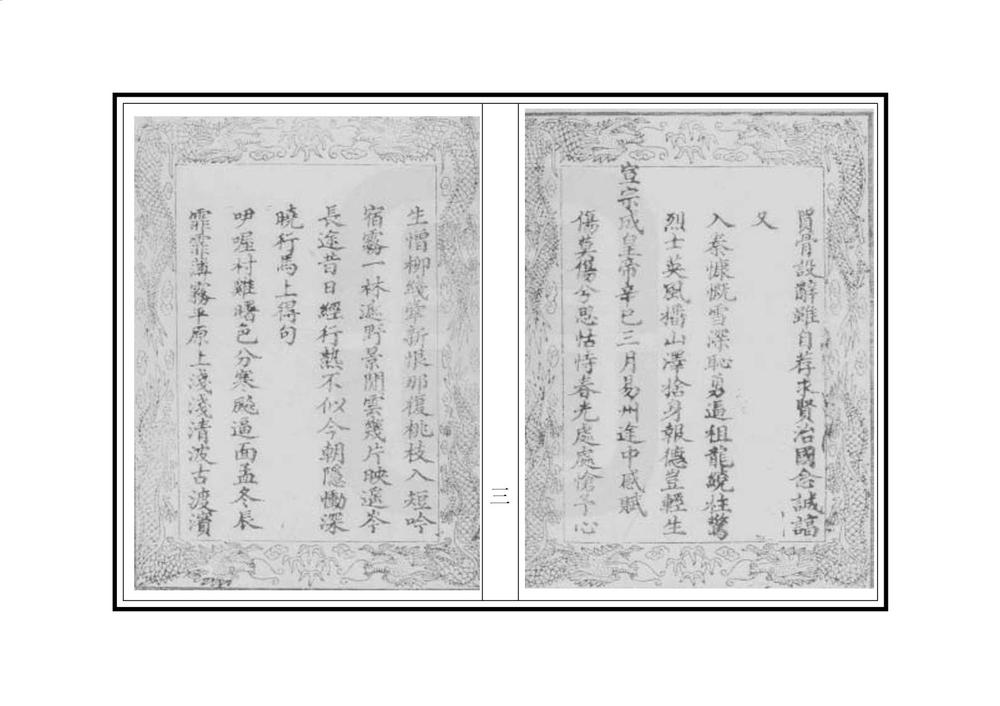 買骨設辭雖自荐求賢治國念誠諂
又
入秦慷慨雪深恥勇逼祖龍繞柱驚
烈士英風播山澤捨身報德豈輕生
宣宗成皇帝辛巳三月易州途中感賦
傷莫傷兮思怙恃春光處處愴予心
三
生憎柳綫牽新恨那復桃枝入短吟
宿靄一林遮野景閒雲幾片映遙岑
長途昔日經行熟不似今朝隱慟深
曉行馬上得句
咿喔村雞曙色分寒飈逼面孟冬辰
霏霏薄霧平原上淺淺清波古渡濱